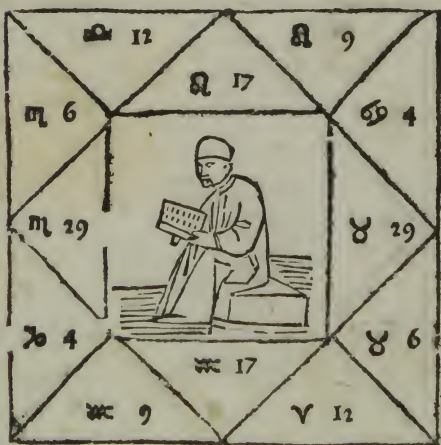 ♎ 12
♌ 9
♌ 17
♏ 6
♋ 4
♏ 29
♉ 29
♑ 4
♉ 6
♒ 17
♒ 9
♈ 12